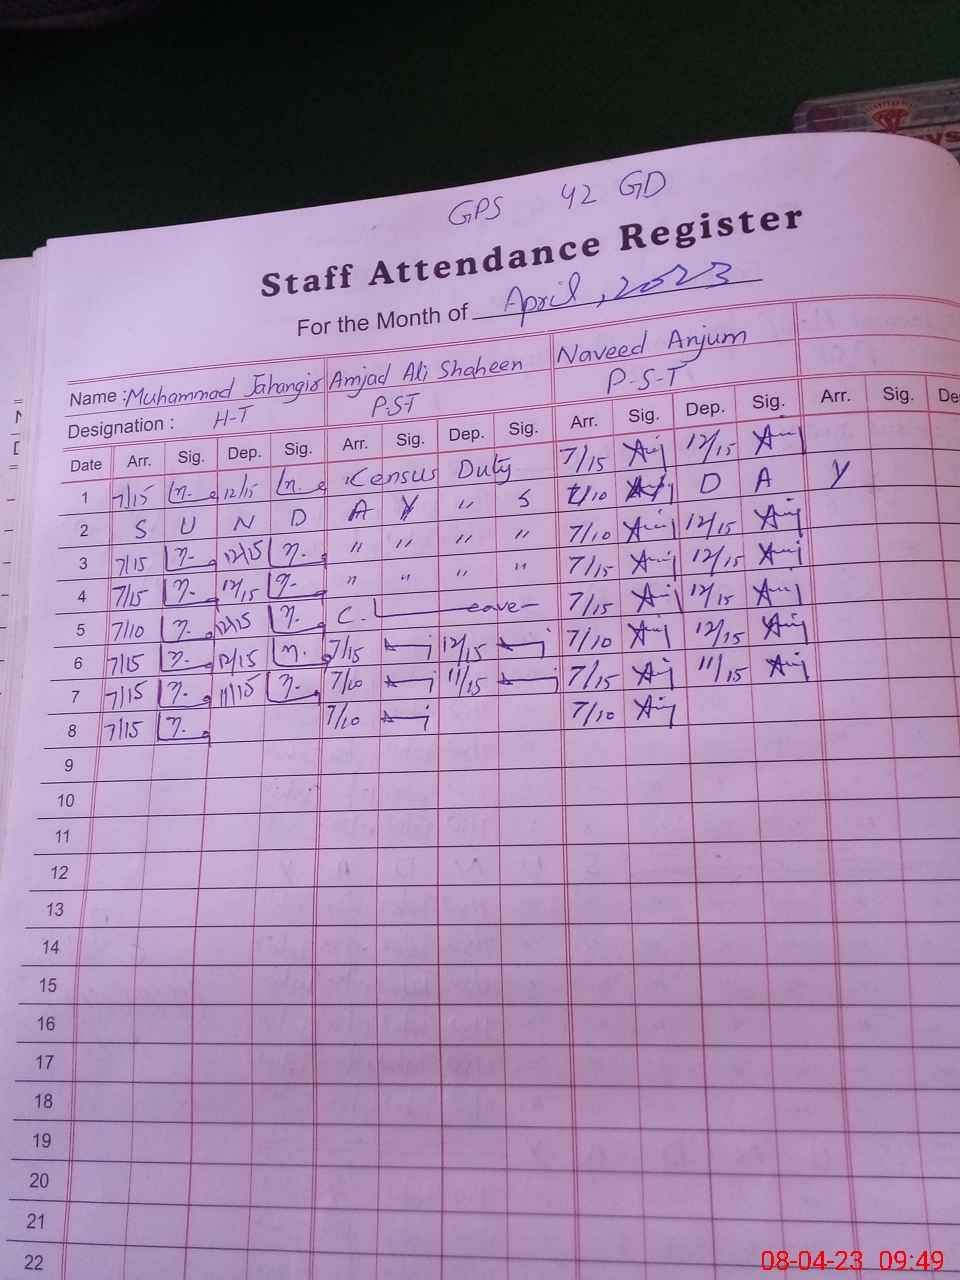 GPS 42 GD
Staff Attendance Register
For the Month of April, 2023
Name : Muhammad Jahangir Amjad Ali Shaheen Naveed Anjum
Designation : H-T P.ST P-S-T
Date Arr. Sig. Dep. Sig. Arr. Sig. Dep. Sig. Arr. Sig. Dep. Sig. Arr. Sig. De
1 7/15 12/15 Census Duty 7/15 12/15
2 S U N D A Y " S 7/10 D A Y
3 7/15 12/15 " " " " 7/10 12/15
4 7/15 12/15 " " " " 7/15 12/15
5 7/10 12/15 C. Leave 7/15 12/15
6 7/15 12/15 7/15 12/15 7/10 12/15
7 7/15 11/15 7/10 11/15 7/15 11/15
8 7/15 7/10 7/10
9
10
11
12
13
14
15
16
17
18
19
20
21
22
08-04-23 09:49